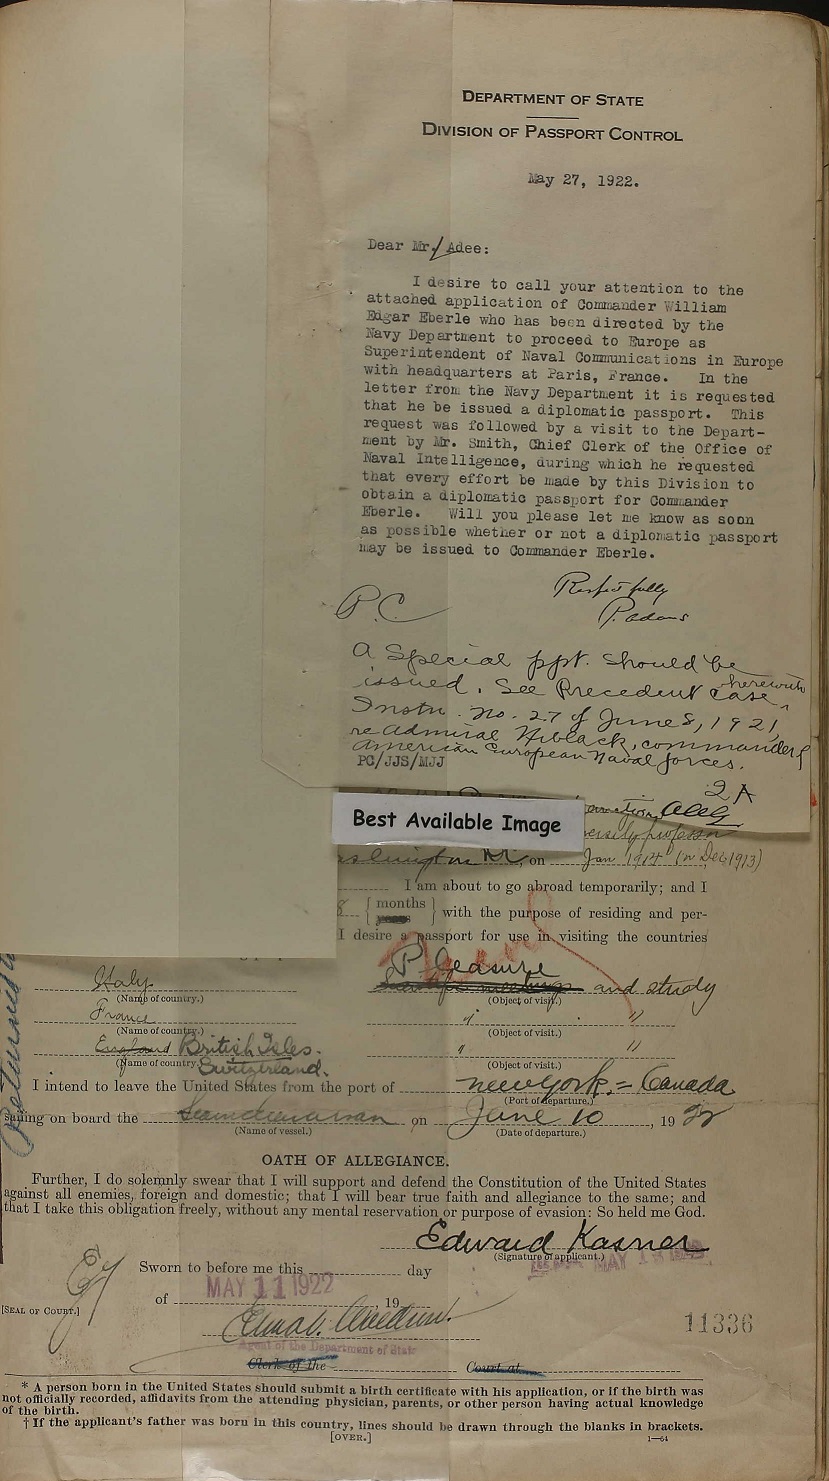 DEPARTMENT OF STATE
DIVISION OF PASSPORT CONTROL
May 27, 1922.
Dear Mr. Adee:
I desire to call your attention to the
attached application of Commander William
Edgar Eberle who has been directed by the
Navy Department to proceed to Europe as
Superintendent of Naval Communications in Europe
with headquarters at Paris, France. In the
letter from the Navy Department it is requested
that he be issued a diplomatic passport. This
request was followed by a visit to the Depart-
ment by Mr. Smith, Chief Clerk of the Office of
Naval Intelligence, during which he requested
that every effort be made by this Division to
obtain a diplomatic passport for Commander
Eberle. Will you please let me know as soon
as possible whether or not a diplomatic passport
may be issued to Commander Eberle.
Respectfully
P. Adams
P.C.
A Special ppt. should be
issued. See Precedent case herewith
Instn. no. 27 of June 8, 1921,
re Admiral Niblack, commander of
American European Naval forces.
PC/JJS/MJJ
2A
Best Available Image
on Jan 1914 (or Dec 1913)
I am about to go abroad temporarily; and I
8 {months years} with the purpose of residing and per-
I desire a passport for use in visiting the countries
Italy
Pleasure and study
(Name of country.)
(Object of visit.)
France " "
(Name of country.)
(Object of visit.)
England British Isles. " "
(Name of country.)
(Object of visit.)
Switzerland.
I intend to leave the United States from the port of New York. = Canada
(Port of departure.)
sailing on board the on June 10, 1922
(Name of vessel.)
(Date of departure.)
OATH OF ALLEGIANCE.
Further, I do solemnly swear that I will support and defend the Constitution of the United States
against all enemies, foreign and domestic; that I will bear true faith and allegiance to the same; and
that I take this obligation freely, without any mental reservation or purpose of evasion: So held me God.
Edward Kasner
(Signature of applicant.)
Sworn to before me this day
MAY 11 1922
of , 19
[SEAL OF COURT.]
11336
Agent of the Department of State
Clerk of the Court at
* A person born in the United States should submit a birth certificate with his application, or if the birth was
not officially recorded, affidavits from the attending physician, parents, or other person having actual knowledge
of the birth.
† If the applicant's father was born in this country, lines should be drawn through the blanks in brackets.
[OVER.]
1—64